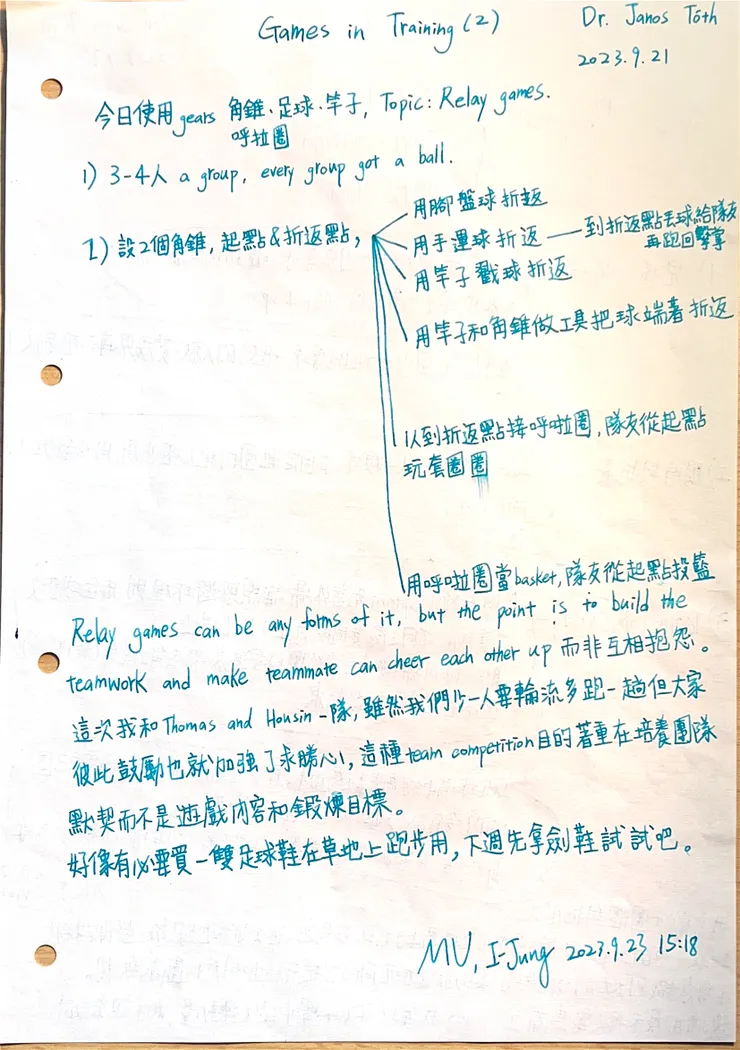 Games in Training (2)
Dr. Janos Tóth
2023.9.21
今日使用 gears 角錐、足球、竿子, Topic: Relay games.
呼拉圈
1) 3-4人 a group, every group got a ball.
2) 設2個角錐, 起點&折返點,
用腳盤球折返
用手運球折返 — 到折返點丟球給隊友
再跑回擊掌
用竿子戳球折返
用竿子和角錐做工具把球端著折返
人到折返點接呼啦圈, 隊友從起點
玩套圈圈
用呼啦圈當basket, 隊友從起點投籃
Relay games can be any forms of it, but the point is to build the
teamwork and make teammate can cheer each other up 而非互相抱怨。
這次我和Thomas and Housin一隊, 雖然我們少一人要輪流多跑一趟但大家
彼此鼓勵也就加強了求勝心, 這種team competition目的著重在培養團隊
默契而不是遊戲內容和鍛煉目標。
好像有必要買一雙足球鞋在草地上跑步用, 下週先拿劍鞋試試吧。
MU, I-Jung 2023.9.23 15:18